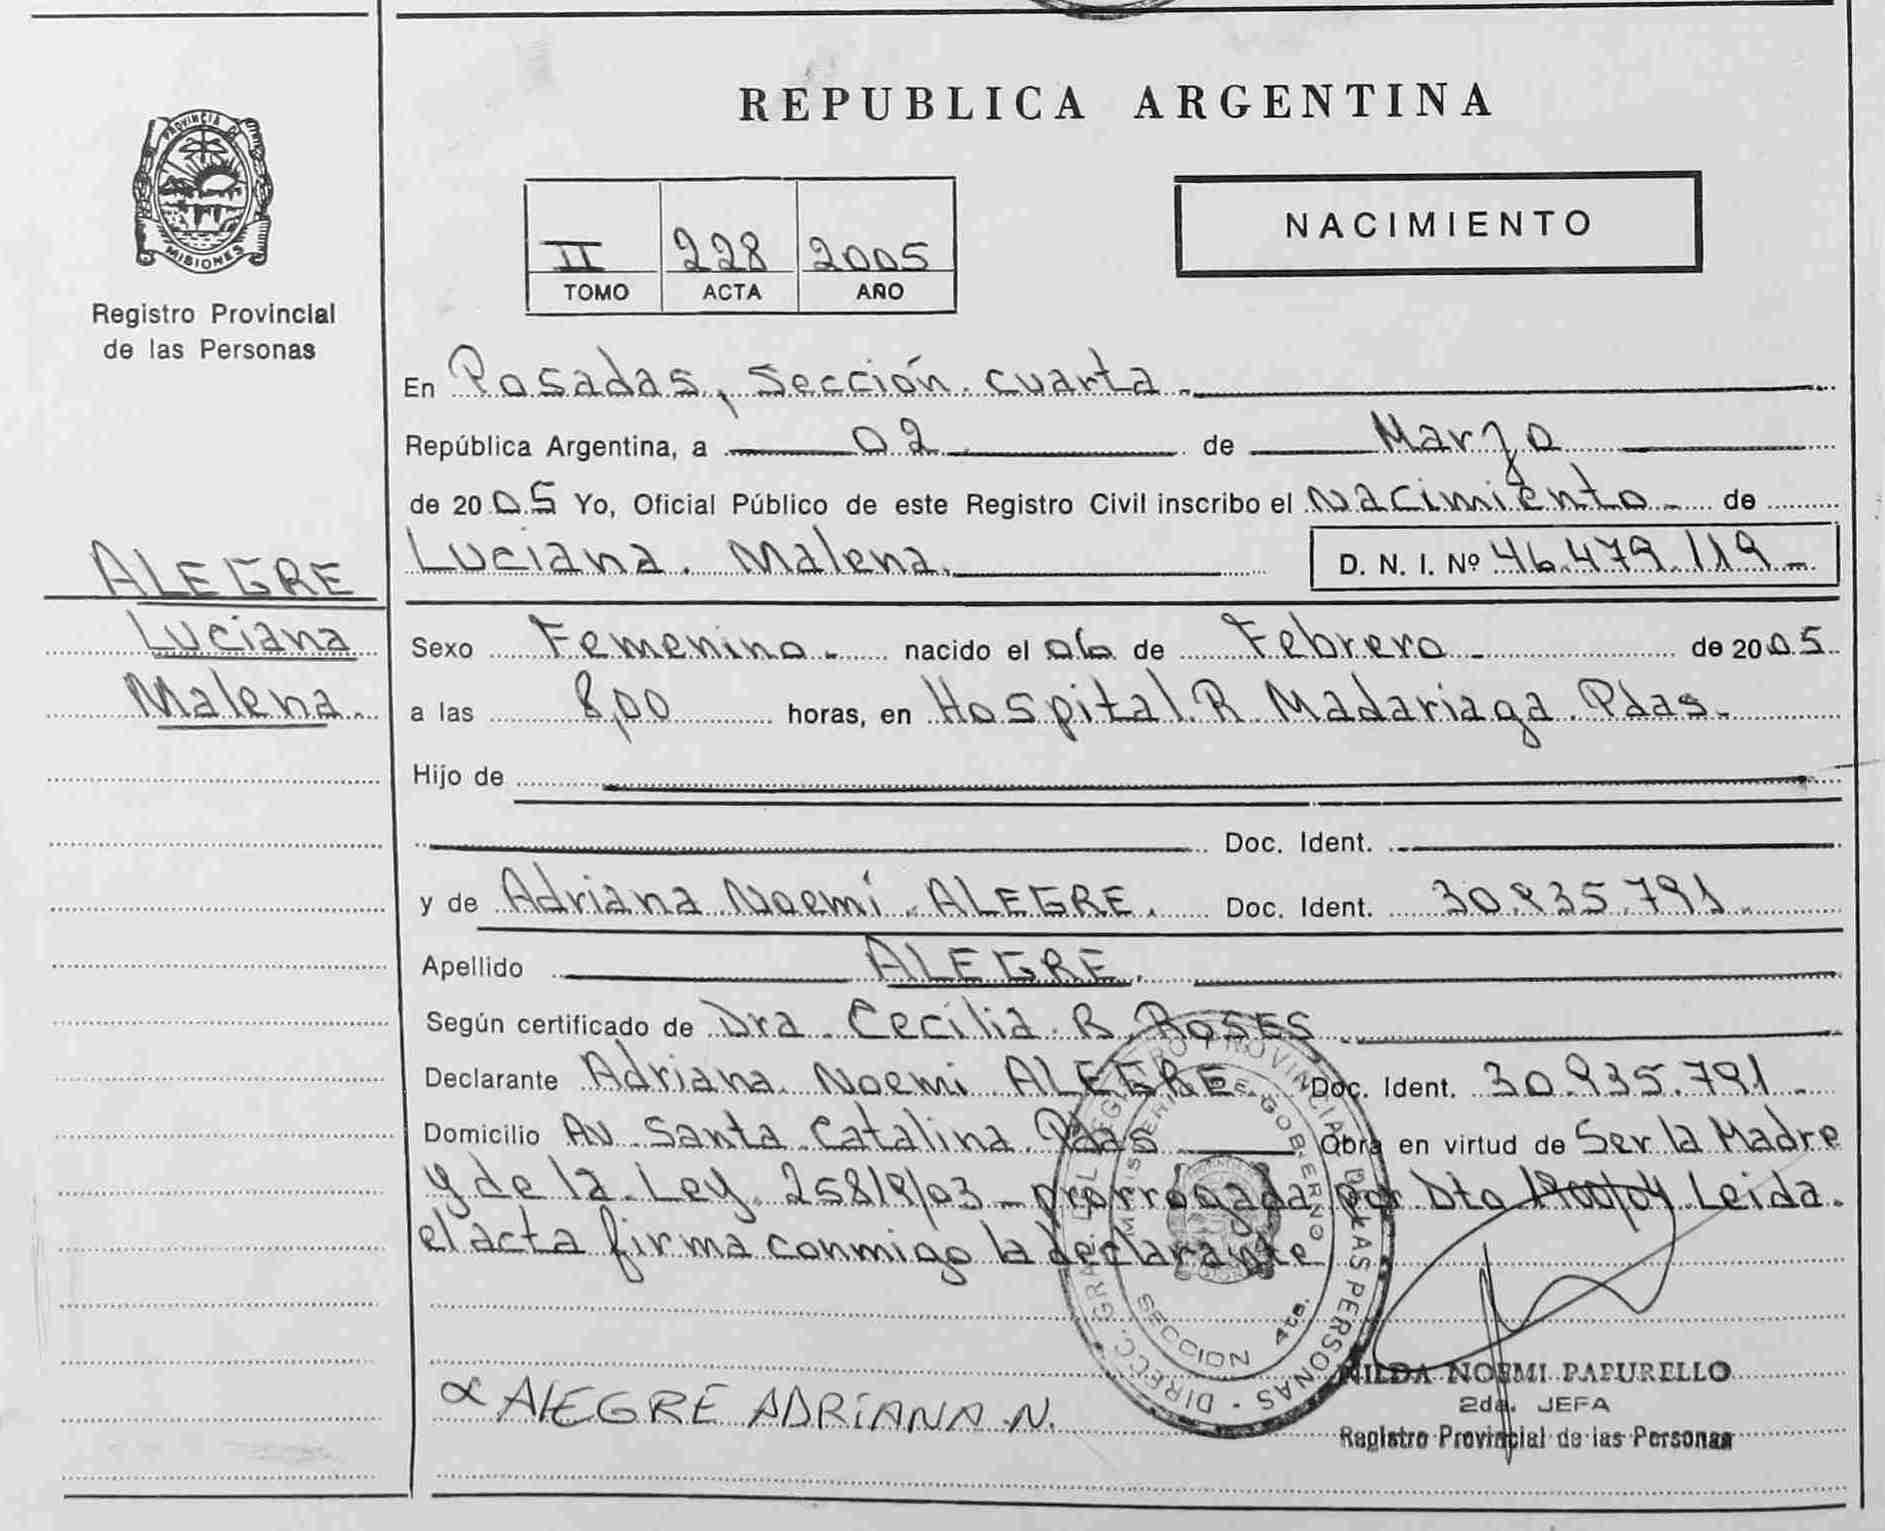 PROVINCIA DE
MISIONES
Registro Provincial
de las Personas
ALEGRE
Luciana
Malena.
REPUBLICA ARGENTINA
II 228 2005
TOMO ACTA AÑO
NACIMIENTO
En Posadas, Sección cuarta
República Argentina, a 02 de Marzo
de 2005 Yo, Oficial Público de este Registro Civil inscribo el nacimiento de
Luciana Malena. D. N. I. Nº 46.479.119
Sexo Femenino nacido el 06 de Febrero de 2005
a las 8,00 horas, en Hospital R. Madariaga Pdas.
Hijo de
Doc. Ident.
y de Adriana Noemí ALEGRE. Doc. Ident. 30.835.791
Apellido ALEGRE.
Según certificado de Dra Cecilia R. ROSES
Declarante Adriana Noemi ALEGRE Doc. Ident. 30.835.791
Domicilio Av Santa Catalina Pdas Obra en virtud de Ser la Madre
y de la Ley 25819/03 prorrogada por Dto Leida
el acta firma conmigo la declarante
DIRECC. GRAL DEL REGISTRO PROVINCIAL DE LAS PERSONAS
MINISTERIO DE GOBIERNO
SECCION 4ta.
ALEGRE ADRIANA N.
NILDA NOEMI PAPURELLO
2da. JEFA
Registro Provincial de las Personas